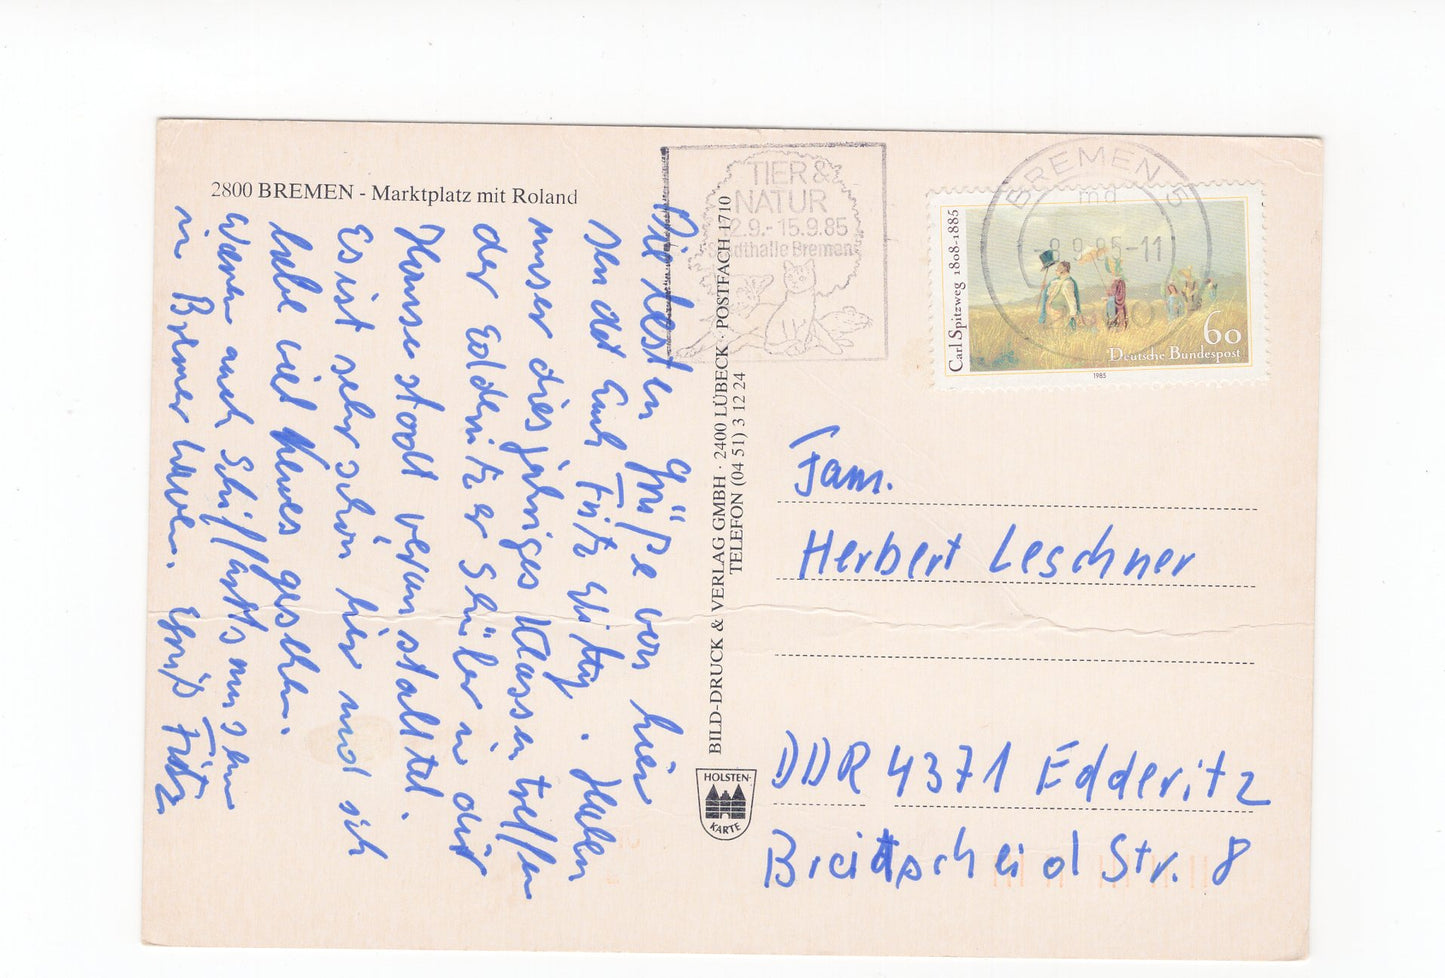 2800 BREMEN - Marktplatz mit Roland
Die besten Grüße von hier
sendet Euch Fritz
unser diesjähriges Klassentreffen
der Edderitzer Schüler in der
Hansestadt veranstaltet.
Es ist sehr schön hier und ich
habe viel Neues gesehen.
Waren auch Schiffahrtsmuseum
in Bremerhaven. Gruß Fritz
BILD-DRUCK & VERLAG GMBH · 2400 LÜBECK · POSTFACH 1710
TELEFON (04 51) 3 12 24
HOLSTEN-
KARTE
TIER &
NATUR
12.9.-15.9.85
Stadthalle Bremen
BREMEN 5
md
-8.9.85-11
Carl Spitzweg 1808-1885
60
Deutsche Bundespost
1985
Fam.
Herbert Leschner
DDR 4371 Edderitz
Breitscheid Str. 8